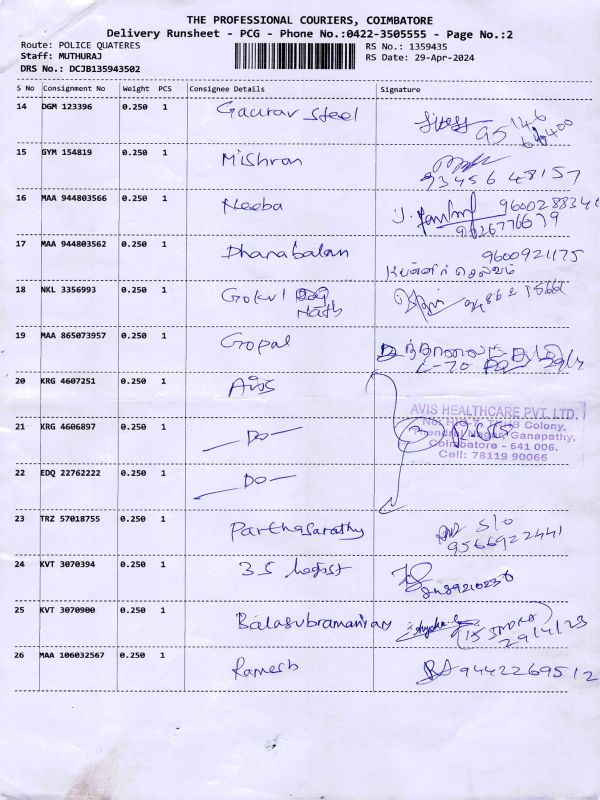 THE PROFESSIONAL COURIERS, COIMBATORE
Delivery Runsheet - PCG - Phone No.:0422-3505555 - Page No.:2
Route: POLICE QUATERES RS No.: 1359435
Staff: MUTHURAJ RS Date: 29-Apr-2024
DRS No.: DCJB135943502
S No Consignment No Weight PCS Consignee Details Signature
14 DGM 123396 0.250 1 Gaurav Steel
15 GYM 154819 0.250 1 Mishran
93456 48157
16 MAA 944803566 0.250 1 Heeba
9626776679
17 MAA 944803562 0.250 1 Dhanabalan 9600921175
18 NKL 3356993 0.250 1 Gokul
Nath
19 MAA 865073957 0.250 1 Gopal
20 KRG 4607251 0.250 1 Avis
AVIS HEALTHCARE PVT. LTD.
21 KRG 4606897 0.250 1 — Do —
Colony,
Ganapathy,
Coimbatore - 641 006.
Cell: 78119 90066
22 EDQ 22762222 0.250 1 — Do —
23 TRZ 57018755 0.250 1 Parthasarathy S/o
9566922441
24 KVT 3070394 0.250 1 3S
25 KVT 3070900 0.250 1 Balasubramaniyan
29/4/23
26 MAA 106032567 0.250 1 Ramesh 9442269512